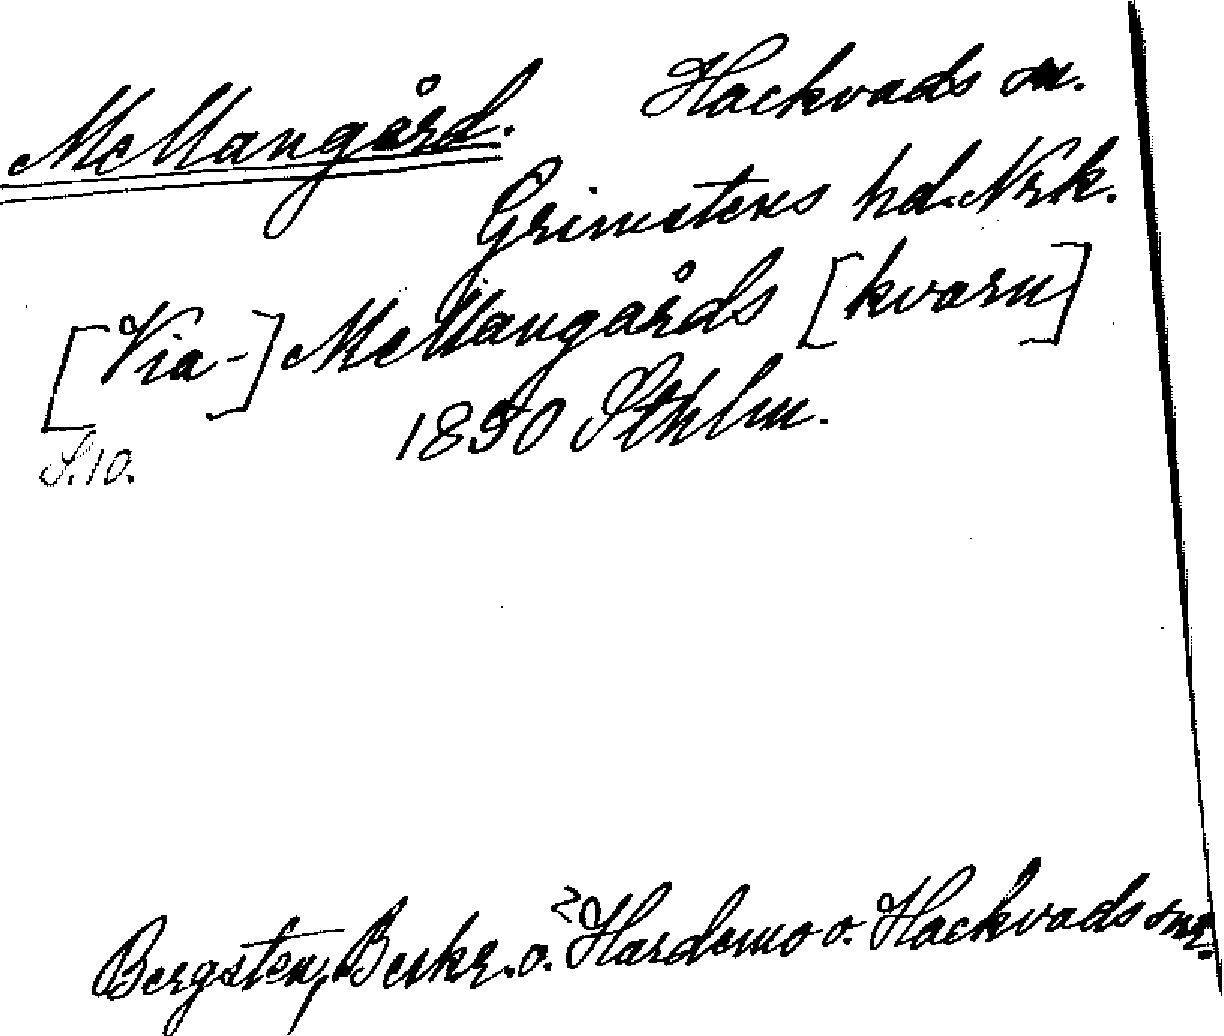 Mellangård. Hackvads sn.
Grimstens hd. Nrk.
[Via-] Mellangårds [kvarn]
S. 10. 1850 Sthlm.
Bergsten, Beskr. ö. Hardemo o. Hackvads snr.